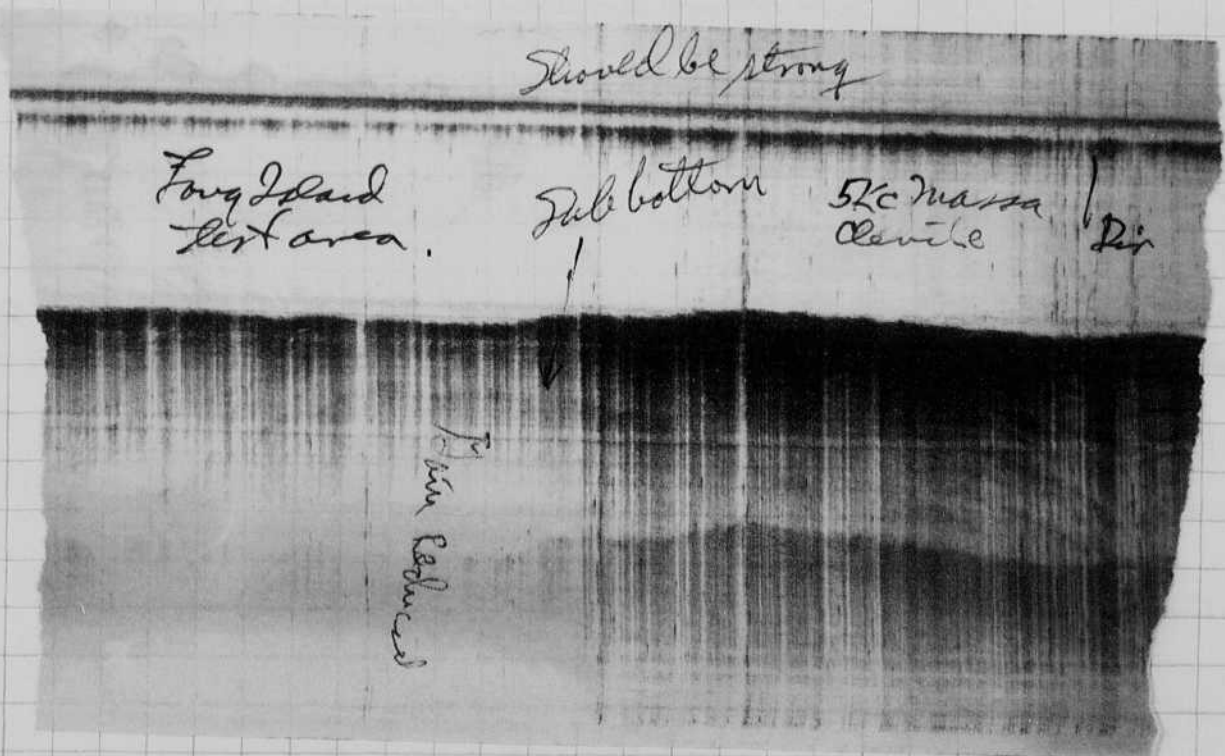 Should be strong
Long Island
test area.
Sub bottom
5Kc Massa
Clevite
Gain Reduced